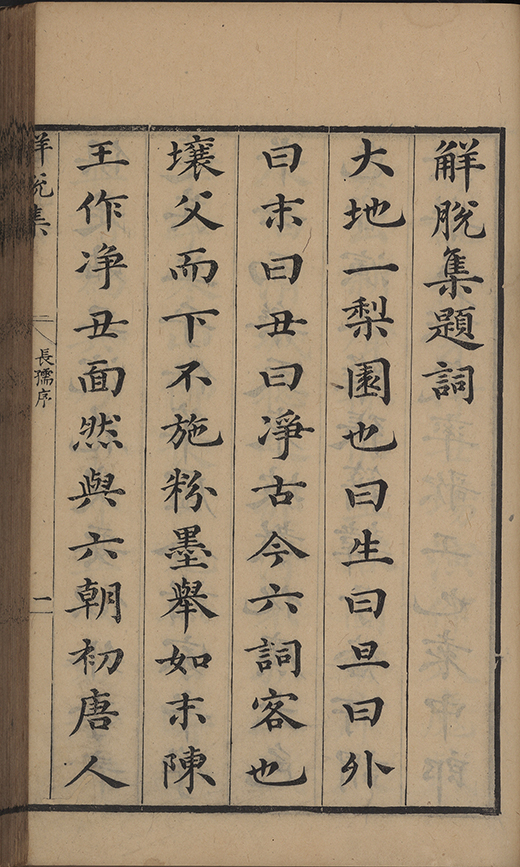 解脫集題詞
大地一梨園也曰生曰旦曰外
曰末曰丑曰淨古今六詞客也
壤父而下不施粉墨舉如末陳
王作净丑面然與六朝初唐人
解脫集
二
長孺序
一